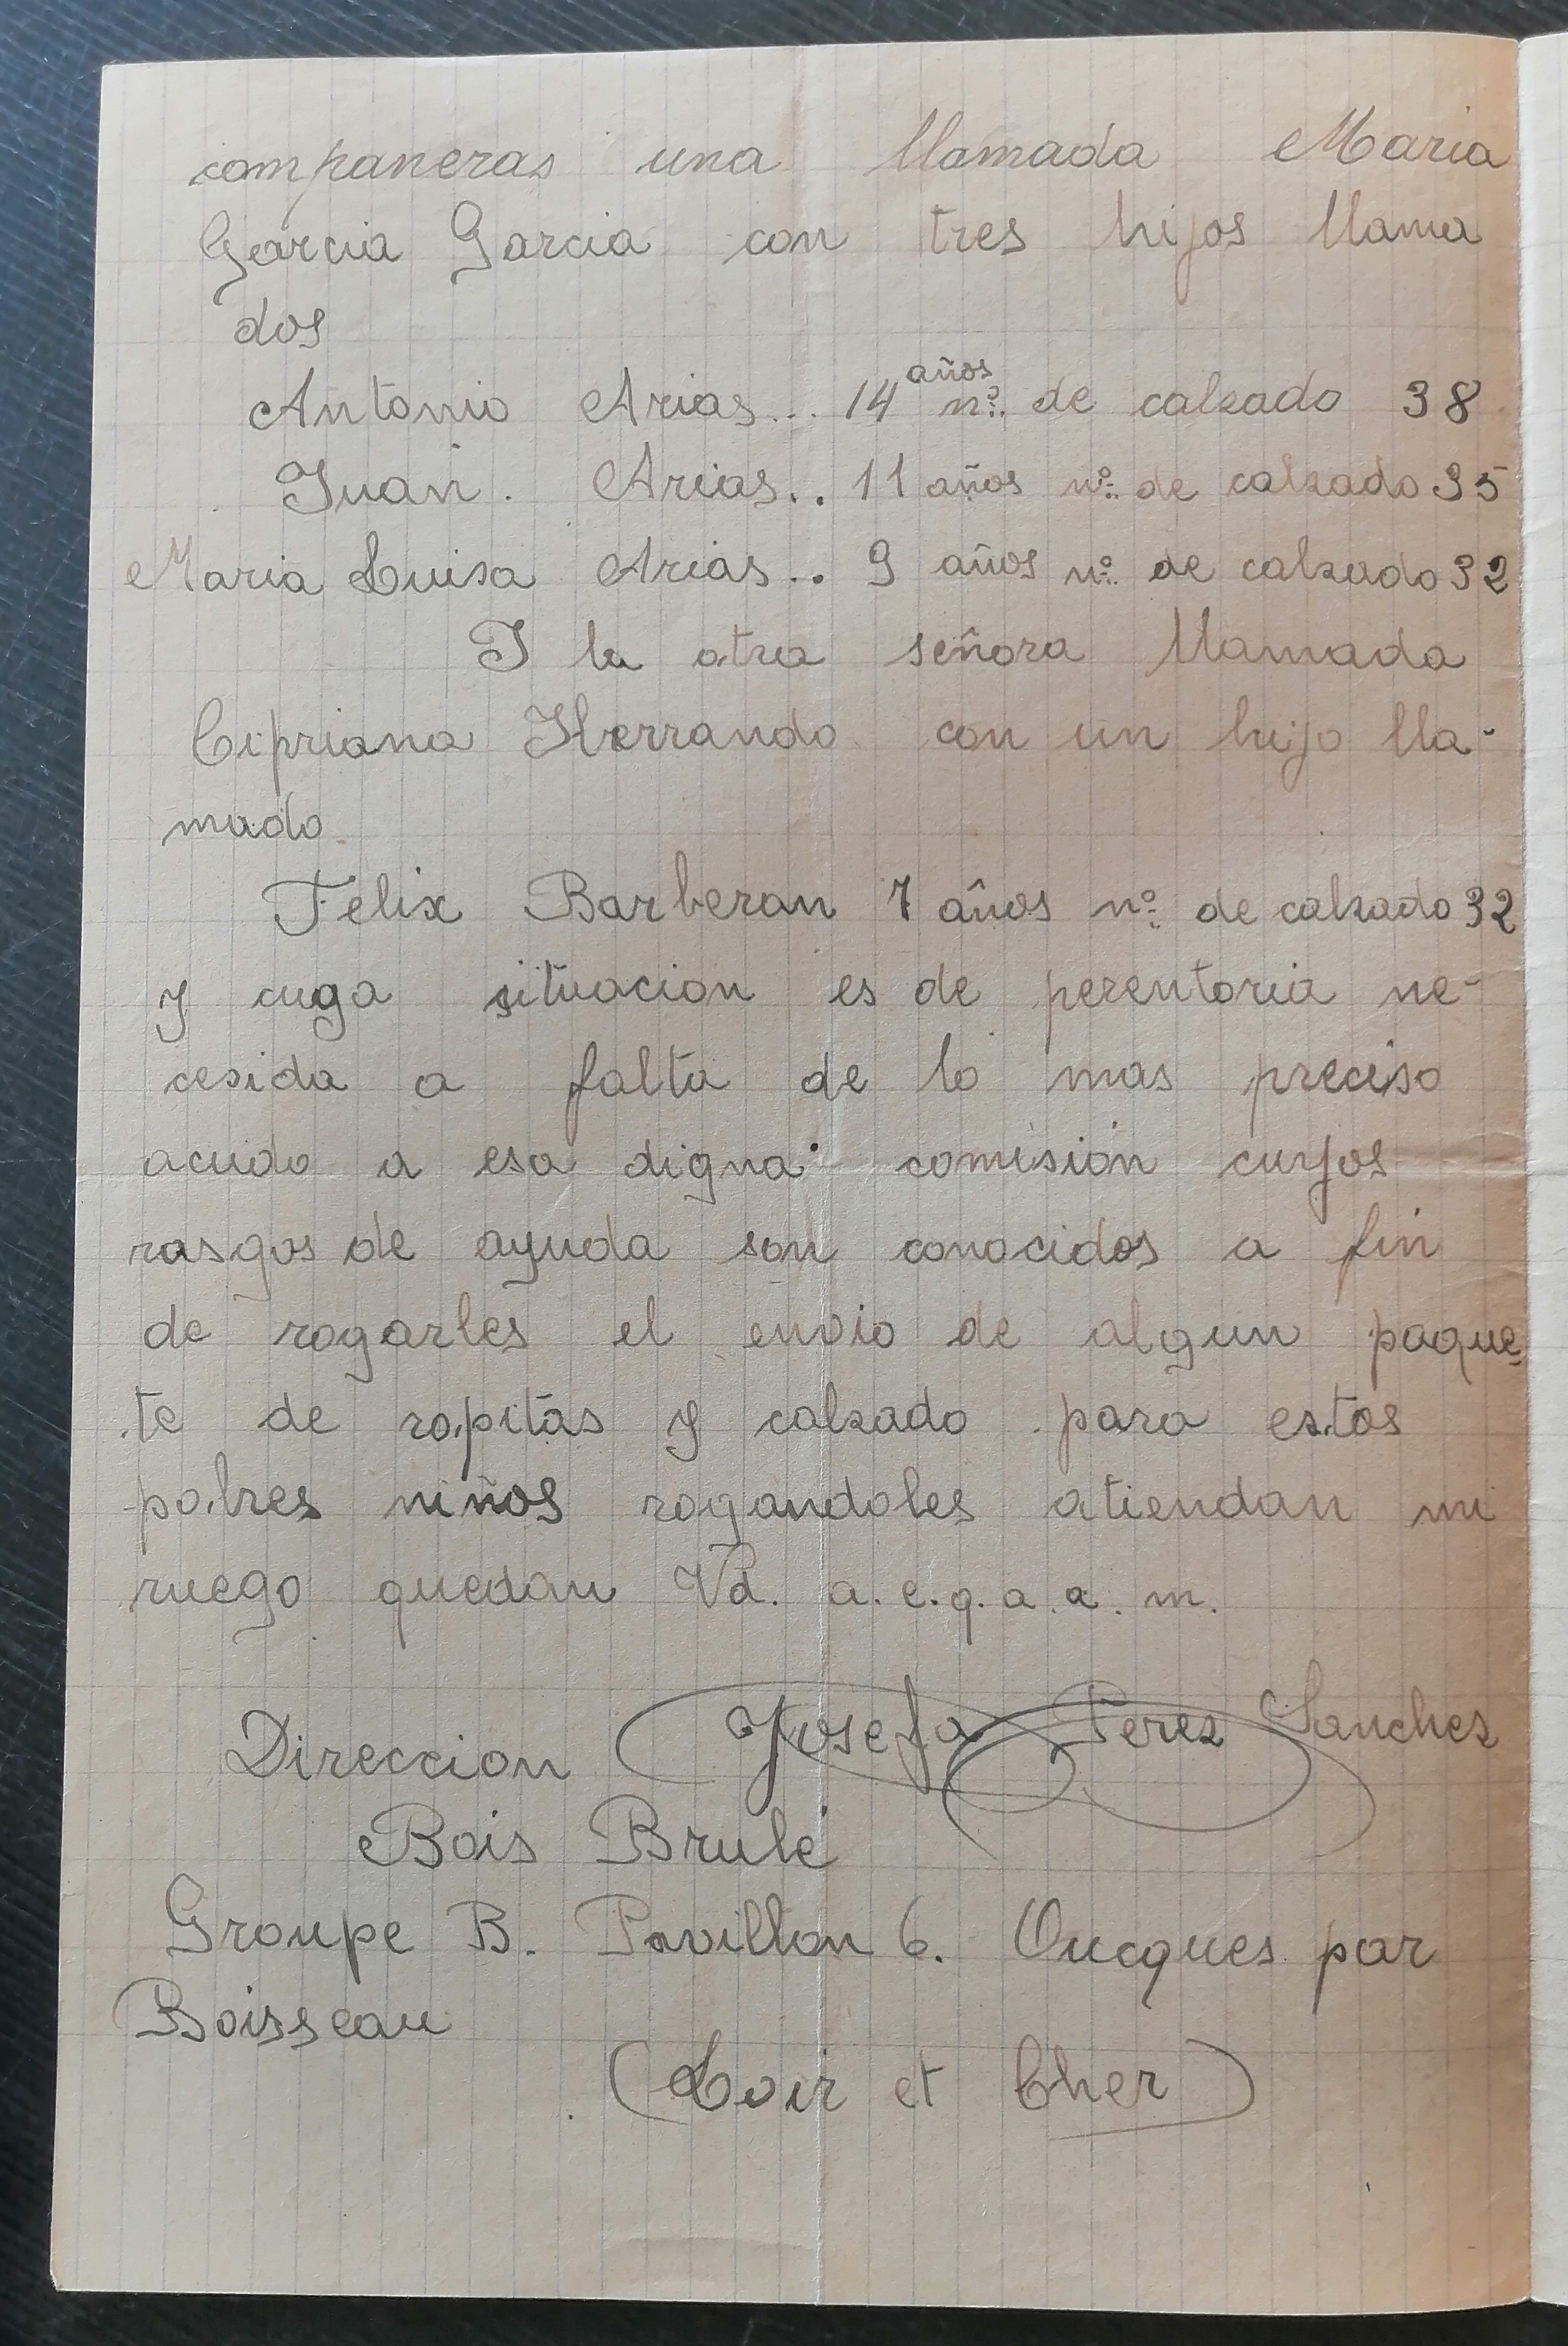 companeras una llamada Maria
Garcia Garcia con tres hijos llama
dos
Antonio Arias... 14 años nº. de calzado 38
Juan. Arias.. 11 años nº. de calzado 35
Maria Luisa Arias.. 9 años nº. de calzado 32
I la otra señora llamada
Cipriana Herrando con un hijo lla-
mado
Felix Barberan 7 años nº. de calzado 32
y cuga situacion es de perentoria ne-
cesida a falta de lo mas preciso
acudo a esa digna comisión cuyos
rasgos de ayuda son conocidos a fin
de rogarles el envio de algun paque-
te de ropitas y calzado para estos
pobres niños rogandoles atiendan mi
ruego quedan Vd. a. e. q. a. a. m.
Josefa Perez Sanchez
Direccion
Bois Brulé
Groupe B. Pavillon 6. Oucques par
Boisseau
(Loir et Cher)